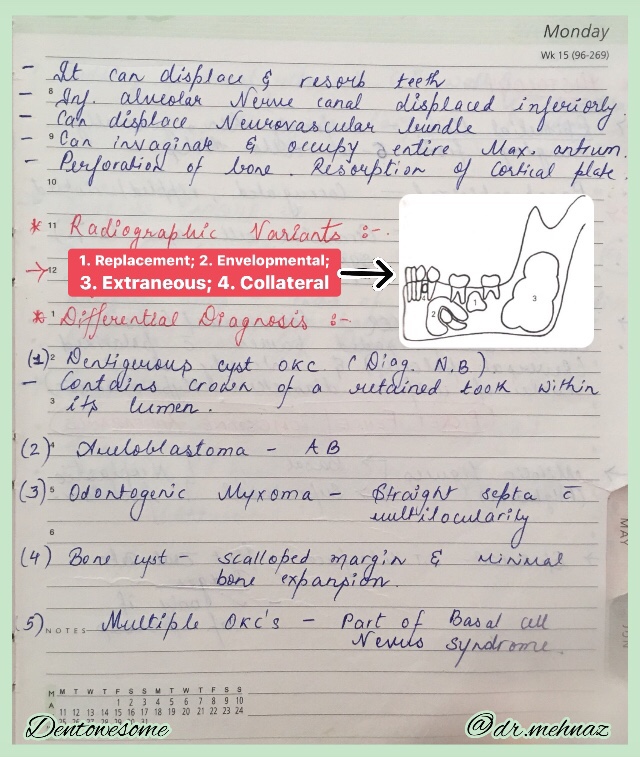 Monday
Wk 15 (96-269)
- It can displace & resorb teeth
- 8 Inf. alveolar Nerve canal displaced inferiorly.
- Can displace Neurovascular bundle
- 9 Can invaginate & occupy entire Max. antrum.
- Perforation of bone. Resorption of Cortical plate.
10
* 11 Radiographic Variants :-
→ 12 1. Replacement; 2. Envelopmental;
3. Extraneous; 4. Collateral
1
2
3
* 1 Differential Diagnosis :-
(1) 2 Dentigerous cyst OKC (Diag. N.B)
- Contains crown of a retained tooth within
3 its lumen.
(2) 4 Ameloblastoma - AB
(3) 5 Odontogenic Myxoma - Straight septa c̄
multilocularity
6
(4) Bone cyst - scalloped margin & Minimal
bone expansion.
5) NOTES Multiple OKC's - Part of Basal cell
Nevus syndrome.
MAY
JUN
M M T W T F S S M T W T F S S M T W T F S S
A 1 2 3 4 5 6 7 8 9 10
11 12 13 14 15 16 17 18 19 20 21 22 23 24
Dentowesome
@dr.mehnaz